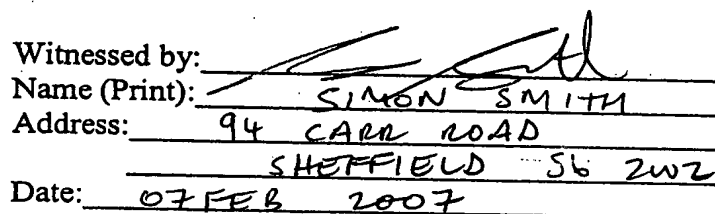 Witnessed by:
Name (Print): SIMON SMITH
Address: 94 CARR ROAD
SHEFFIELD S6 2WZ
Date: 07 FEB 2007